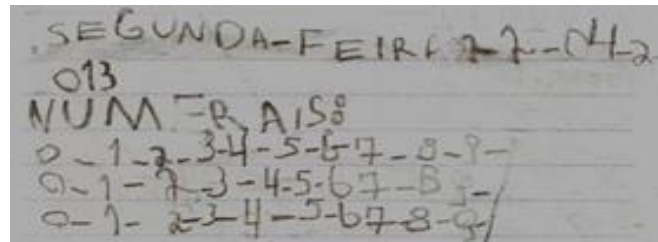 .SEGUNDA-FEIRA 22-04-2
013
NUMERAIS:
0-1-2-3-4-5-6-7-8-9-
0-1-2-3-4-5-6-7-8-9-/
0-1-2-3-4-5-6-7-8-9-/